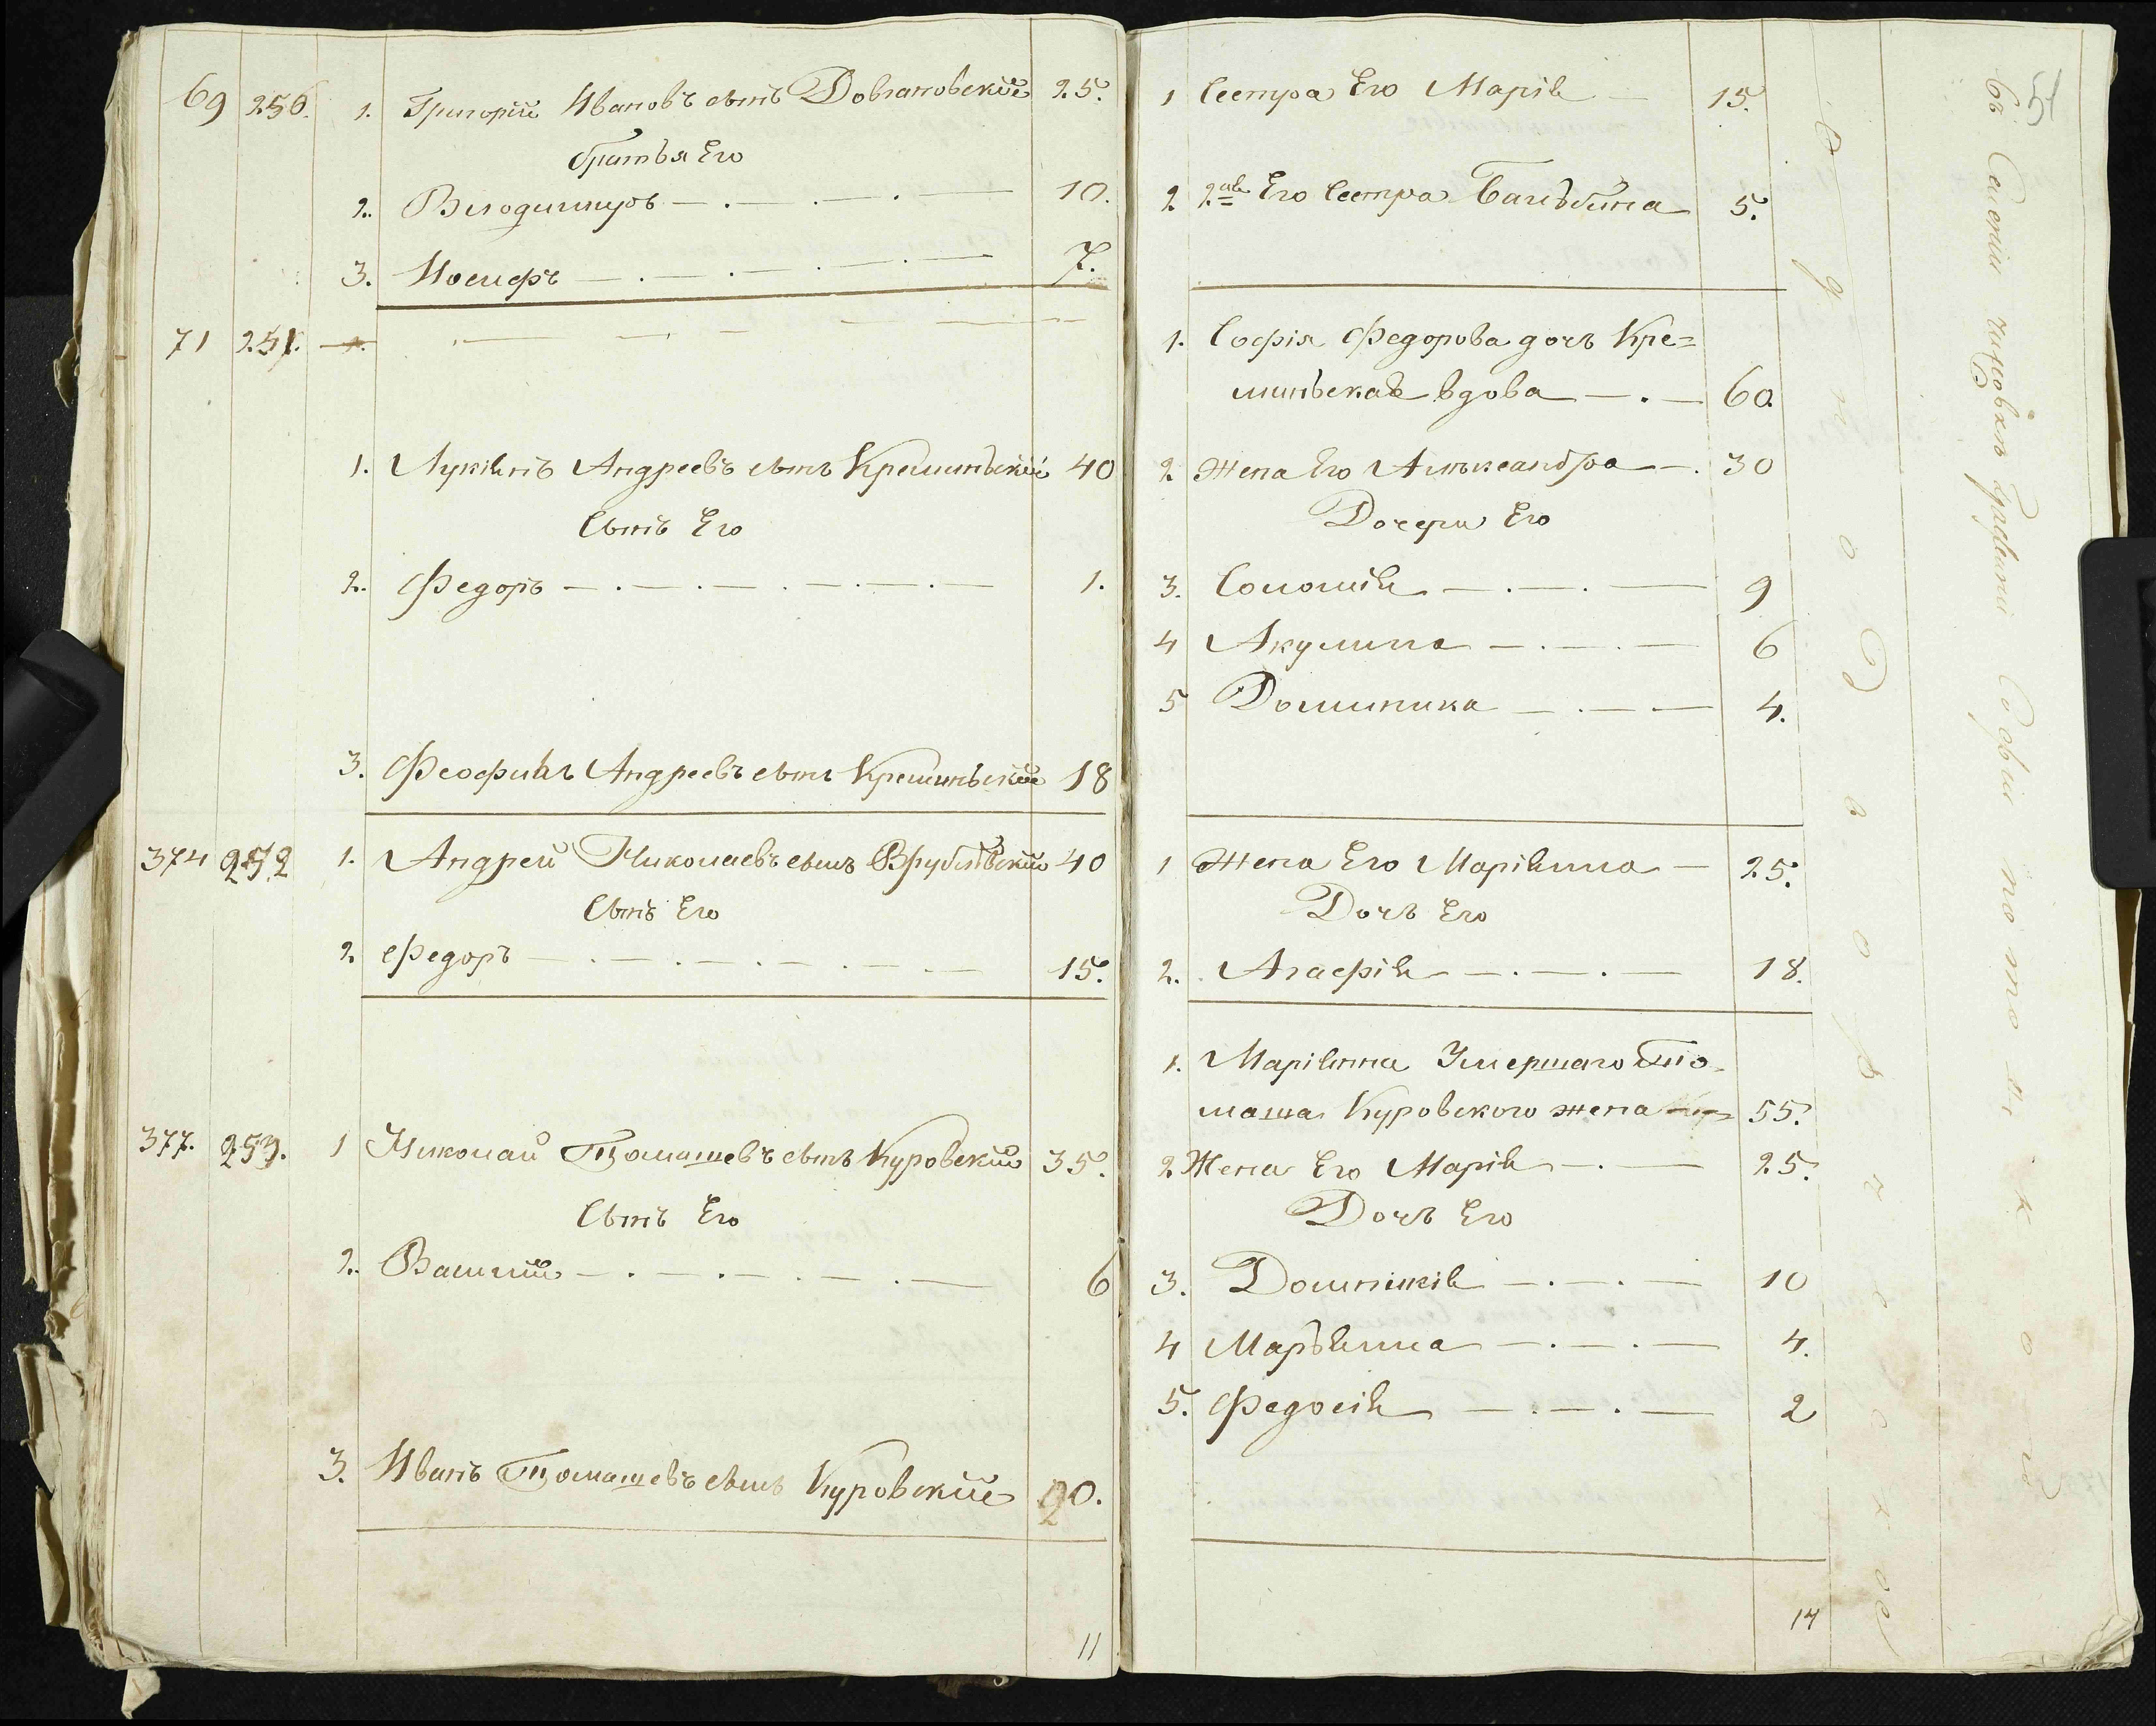 69 256. 1. Григорій Ивановъ сынъ Довгановскій 25.
братья Его
2. Влодимиръ 10.
3. Иосифъ 7.
71 251. 1.
1. Лукіянъ Андреевъ сынъ Креминьскій 40
Сынъ Его
2. Федоръ 1.
3. Феофилъ Андреевъ сынъ Креминьскій 18
374 252 1. Андрей Николаевъ сынъ Врублевскій 40
Сынъ Его
2. Федоръ 15.
377. 253. 1 Николай Томашевъ сынъ Куровскій 35.
Сынъ Его
2. Василий 6
3. Иванъ Томашевъ сынъ Куровскій 20.
11
51
1 Сестра Его Марія 15.
2 2ая Его Сестра Бальбина 5.
1. Софія Федорова дочь Кре=
миньская вдова 60.
2 Жена Его Александра 30
Дочери Его
3. Соломія 9
4 Акулина 6
5 Доминика 4.
1 Жена Его Маріянна 25.
Дочь Его
2. Агафія 18.
1. Маріянна Умершаго То-
маша Куровского жена 55.
2 Жена Его Марія 25.
Дочь Его
3. Доминікія 10
4 Марьянна 4.
5. Федосія 2
14